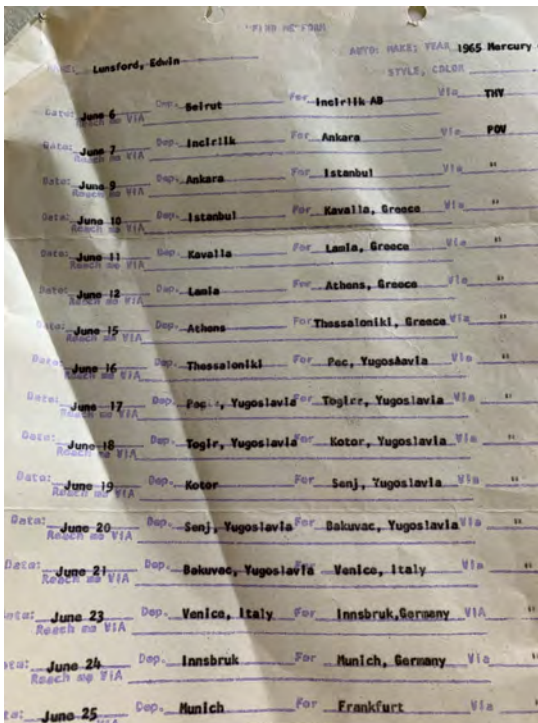 "FIND ME" FORM
AUTO: MAKE: YEAR 1965 Mercury
NAME: Lunsford, Edwin
STYLE, COLOR
Date: June 6 Dep. Beirut For Incirlik AB Via THY
Reach me VIA
Date: June 7 Dep. Incirlik For Ankara Via POV
Reach me VIA
Date: June 9 Dep. Ankara For Istanbul Via "
Reach me VIA
Date: June 10 Dep. Istanbul For Kavalla, Greece Via "
Reach me VIA
Date: June 11 Dep. Kavalla For Lamia, Greece Via "
Reach me VIA
Date: June 12 Dep. Lamia For Athens, Greece Via "
Reach me VIA
Date: June 15 Dep. Athens For Thessaloniki, Greece Via "
Reach me VIA
Date: June 16 Dep. Thessaloniki For Pec, Yugoslavia Via "
Reach me VIA
Date: June 17 Dep. Yugoslavia For Yugoslavia Via "
Reach me VIA
Date: June 18 Dep. Togir, Yugoslavia For Kotor, Yugoslavia Via "
Reach me VIA
Date: June 19 Dep. Kotor For Senj, Yugoslavia Via "
Reach me VIA
Date: June 20 Dep. Senj, Yugoslavia For Bakuvac, Yugoslavia Via "
Reach me VIA
Date: June 21 Dep. Bakuvac, Yugoslavia For Venice, Italy Via "
Reach me VIA
Date: June 23 Dep. Venice, Italy For Innsbruk,Germany VIA "
Reach me VIA
Date: June 24 Dep. Innsbruk For Munich, Germany Via "
Reach me VIA
Date: June 25 Dep. Munich For Frankfurt Via "